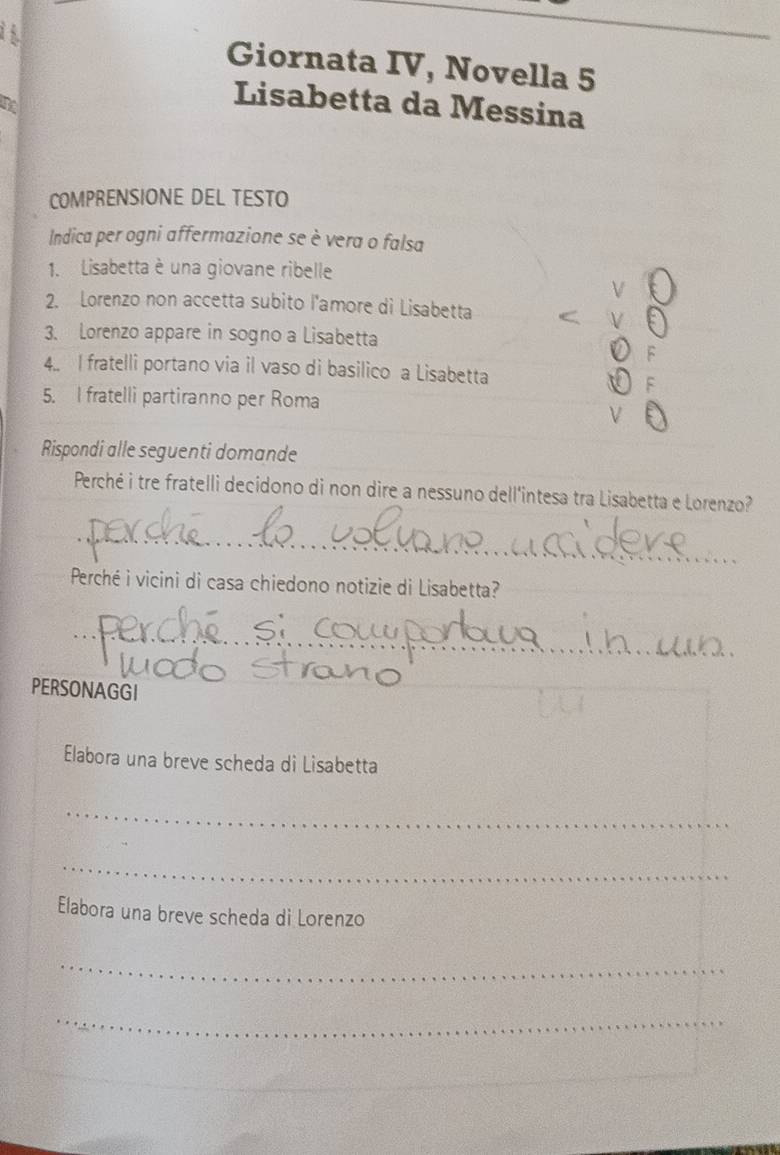 Giornata IV, Novella 5
Lisabetta da Messina
COMPRENSIONE DEL TESTO
Indica per ogni affermazione se è vera o falsa
1. Lisabetta è una giovane ribelle V F
2. Lorenzo non accetta subito l'amore di Lisabetta < V F
3. Lorenzo appare in sogno a Lisabetta V F
4.. I fratelli portano via il vaso di basilico a Lisabetta V F
5. I fratelli partiranno per Roma V F
Rispondi alle seguenti domande
Perché i tre fratelli decidono di non dire a nessuno dell'intesa tra Lisabetta e Lorenzo?
perché lo volvano uccidere
Perché i vicini di casa chiedono notizie di Lisabetta?
perché si comportava in un
modo strano
PERSONAGGI
Elabora una breve scheda di Lisabetta
Elabora una breve scheda di Lorenzo